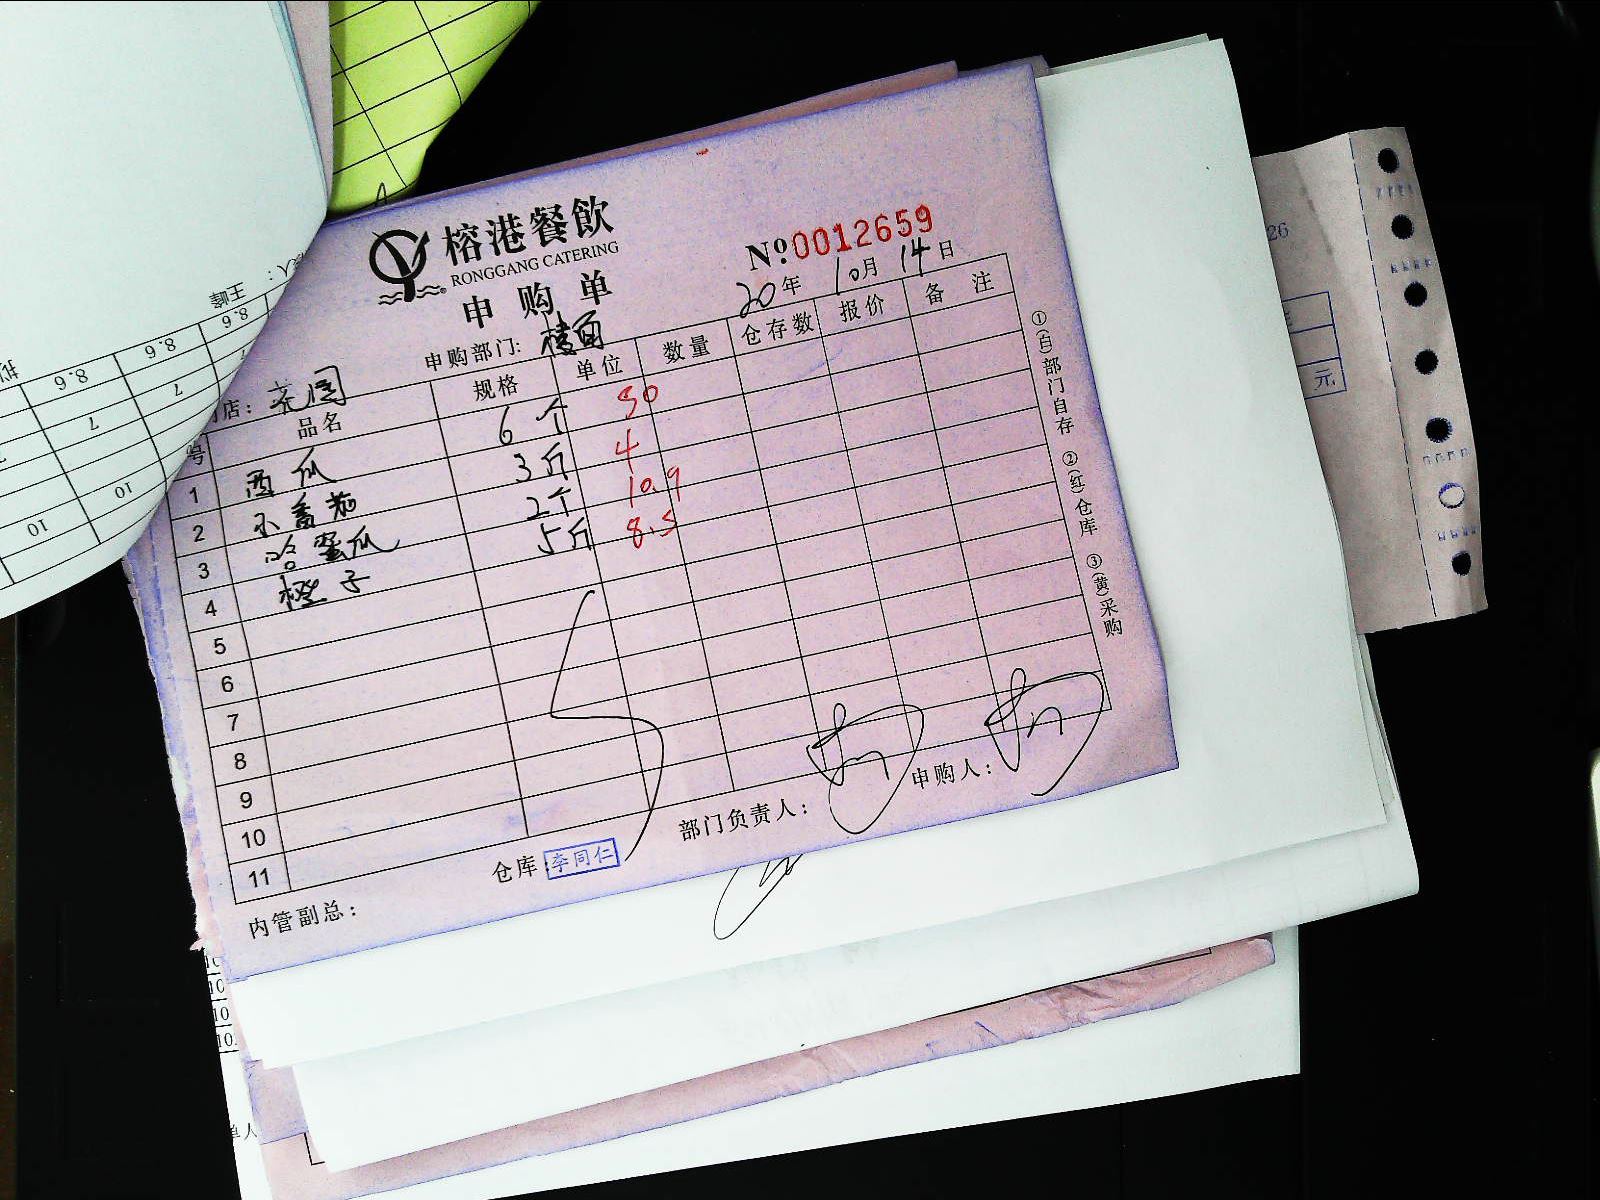 榕港餐飲
RONGGANG CATERING
申购单
№0012659
20年 10月 14日
申购部门: 楼面
店:
号 品名 规格 单位 数量 仓存数 报价 备注
1 西瓜 6个 50
2 小番茄 3斤 4
3 哈蜜瓜 2个 10.9
4 橙子 5斤 8.5
5
6
7
8
9
10
11
仓库: 李同仁
部门负责人:
申购人:
内管副总:
①(白)部门自存 ②(红)仓库 ③(黄)采购
王峰
8.6
8.6
8.6
7
7
10
10
26
元
10
10
10.
单人